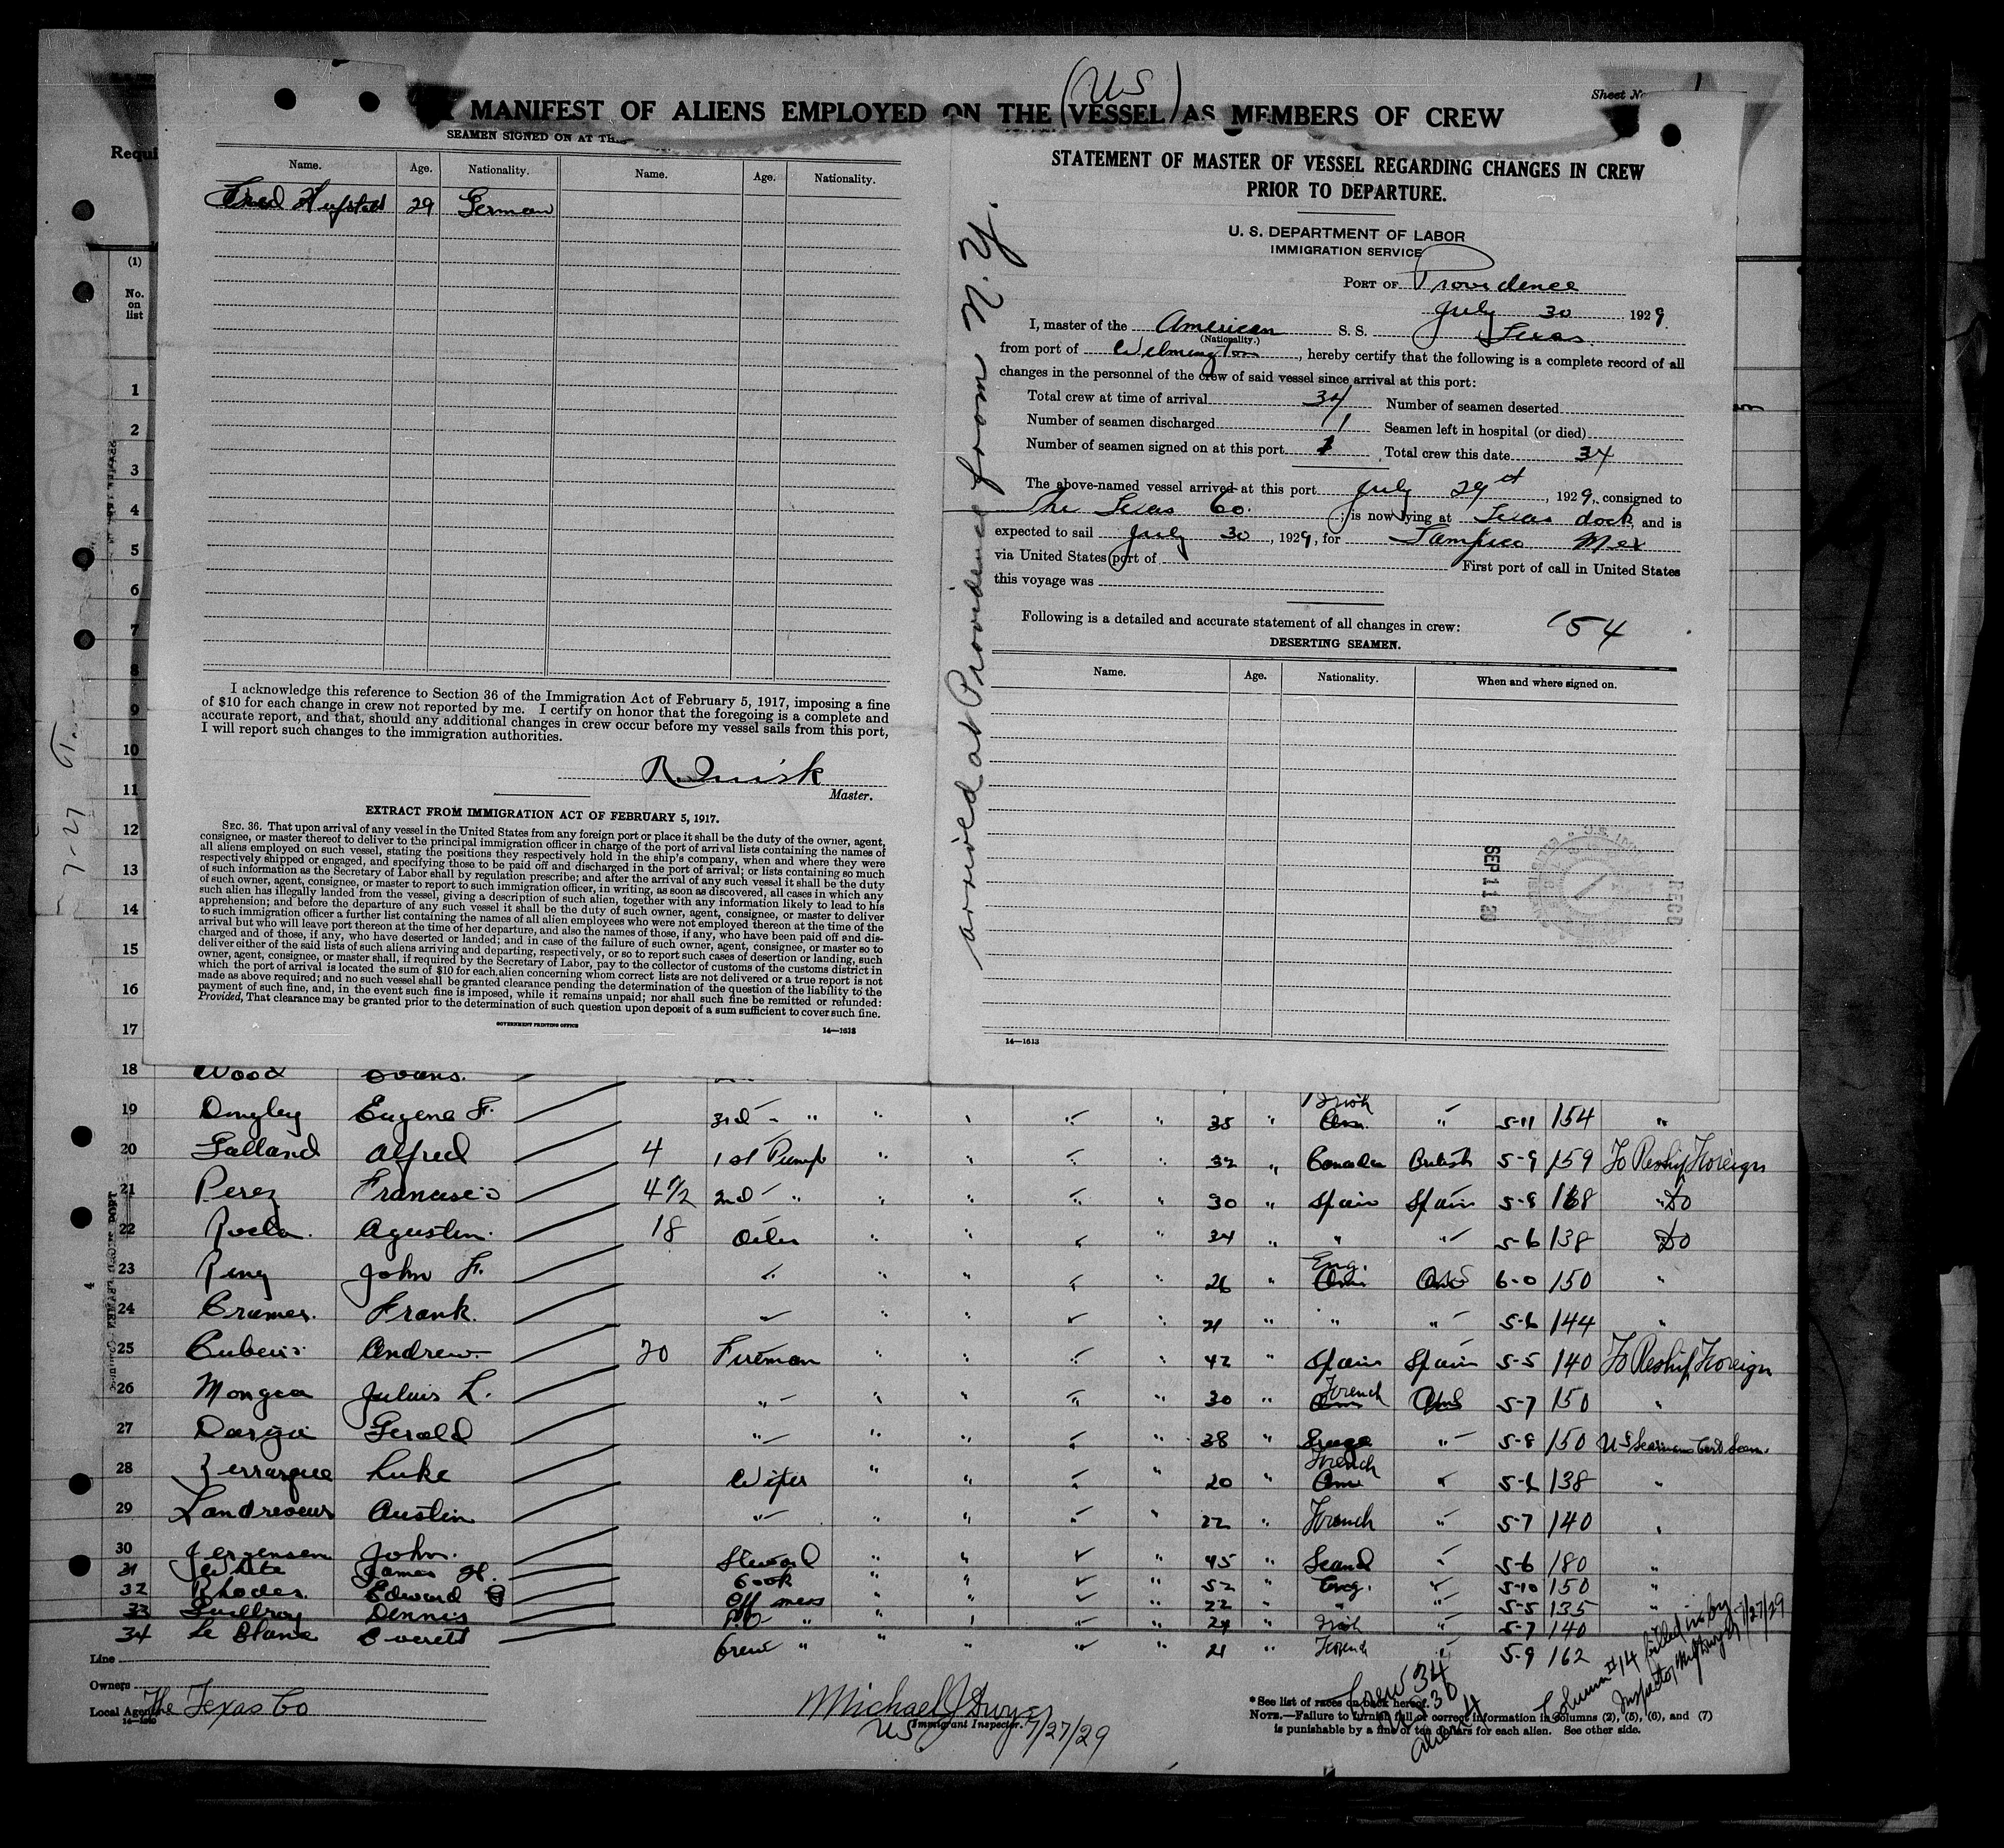 (US)
Sheet No. 1
MANIFEST OF ALIENS EMPLOYED ON THE (VESSEL) AS MEMBERS OF CREW
SEAMEN SIGNED ON AT THIS
Name. Age. Nationality. Name. Age. Nationality.
Fred 29 German
I acknowledge this reference to Section 36 of the Immigration Act of February 5, 1917, imposing a fine
of $10 for each change in crew not reported by me. I certify on honor that the foregoing is a complete and
accurate report, and that, should any additional changes in crew occur before my vessel sails from this port,
I will report such changes to the immigration authorities.
R. Quisk
Master.
EXTRACT FROM IMMIGRATION ACT OF FEBRUARY 5, 1917.
SEC. 36. That upon arrival of any vessel in the United States from any foreign port or place it shall be the duty of the owner, agent,
consignee, or master thereof to deliver to the principal immigration officer in charge of the port of arrival lists containing the names of
all aliens employed on such vessel, stating the positions they respectively hold in the ship's company, when and where they were
respectively shipped or engaged, and specifying those to be paid off and discharged in the port of arrival; or lists containing so much
of such information as the Secretary of Labor shall by regulation prescribe; and after the arrival of any such vessel it shall be the duty
of such owner, agent, consignee, or master to report to such immigration officer, in writing, as soon as discovered, all cases in which any
such alien has illegally landed from the vessel, giving a description of such alien, together with any information likely to lead to his
apprehension; and before the departure of any such vessel it shall be the duty of such owner, agent, consignee, or master to deliver
to such immigration officer a further list containing the names of all alien employees who were not employed thereon at the time of the
arrival but who will leave port thereon at the time of her departure, and also the names of those, if any, who have been paid off and dis-
charged and of those, if any, who have deserted or landed; and in case of the failure of such owner, agent, consignee, or master so to
deliver either of the said lists of such aliens arriving and departing, respectively, or so to report such cases of desertion or landing, such
owner, agent, consignee, or master shall, if required by the Secretary of Labor, pay to the collector of customs of the customs district in
which the port of arrival is located the sum of $10 for each alien concerning whom correct lists are not delivered or a true report is not
made as above required; and no such vessel shall be granted clearance pending the determination of the question of the liability to the
payment of such fine, and, in the event such fine is imposed, while it remains unpaid; nor shall such fine be remitted or refunded:
Provided, That clearance may be granted prior to the determination of such question upon deposit of a sum sufficient to cover such fine.
GOVERNMENT PRINTING OFFICE 14—1613
arrived at Providence from N.Y.
STATEMENT OF MASTER OF VESSEL REGARDING CHANGES IN CREW
PRIOR TO DEPARTURE.
U. S. DEPARTMENT OF LABOR
IMMIGRATION SERVICE
PORT OF Providence
July 30 1929.
I, master of the American S. S. Texas
(Nationality.)
from port of Wilmington, hereby certify that the following is a complete record of all
changes in the personnel of the crew of said vessel since arrival at this port:
Total crew at time of arrival 34 Number of seamen deserted
Number of seamen discharged 1 Seamen left in hospital (or died)
Number of seamen signed on at this port 1 Total crew this date 34
The above-named vessel arrived at this port July 29, 1929, consigned to
The Texas Co.; is now lying at Texas dock, and is
expected to sail July 30, 1929, for Tampico Mex
via United States port of First port of call in United States
this voyage was
Following is a detailed and accurate statement of all changes in crew: 54
DESERTING SEAMEN.
Name. Age. Nationality. When and where signed on.
SEP 11 29
RECD
14—1613
Requi
(1)
No.
on
list
1
2
3
4
5
6
7
8
9
10
11
12
13
14
15
16
17
7-27
18 Wood Evans.
19 Dingley Eugene F. 3rd " 35 " Irish Am. " 5-11 154 "
20 Galland Alfred 4 1st Pump " 32 " Canada British 5-9 159 To Reship Foreign
21 Perez Francisco 4½ 2nd " 30 " Spain Spain 5-8 168 Do
22 Agustin. 18 Oiler " 34 " " " 5-6 138 Do
23 John F. " 26 " Eng. 6-0 150 "
24 Cramer. Frank. " 21 " " " 5-6 144 "
25 Andrew 20 Fireman " 42 " Spain Spain 5-5 140 To Reship Foreign
26 Julius L. " 30 " French 5-7 150 "
27 Gerald " 38 " " 5-8 150 US Seamans
28 Luke Wiper " 20 " French Am " 5-6 138 "
29 Austin " 22 " French " 5-7 140 "
30 Jergensen John. Steward " 45 " Scand " 5-6 180 "
31 White James H. Cook " 52 " Eng. " 5-10 150 "
32 Rhodes Edward Off mess " 22 " " " 5-5 135 "
33 Guillroy Dennis P.O " " 24 " Irish " 5-7 140
34 Le Blanc Everett Crew " " 21 " French " 5-9 162
Line
Owners
Local Agents The Texas Co
Michael J Dwyer
US Immigrant Inspector. 7/27/29
Crew 34
US 30
Alien 4
Column #14 filled in by
Inspector 7/27/29
*See list of races on back hereof.
NOTE.—Failure to furnish full or correct information in columns (2), (5), (6), and (7)
is punishable by a fine of ten dollars for each alien. See other side.